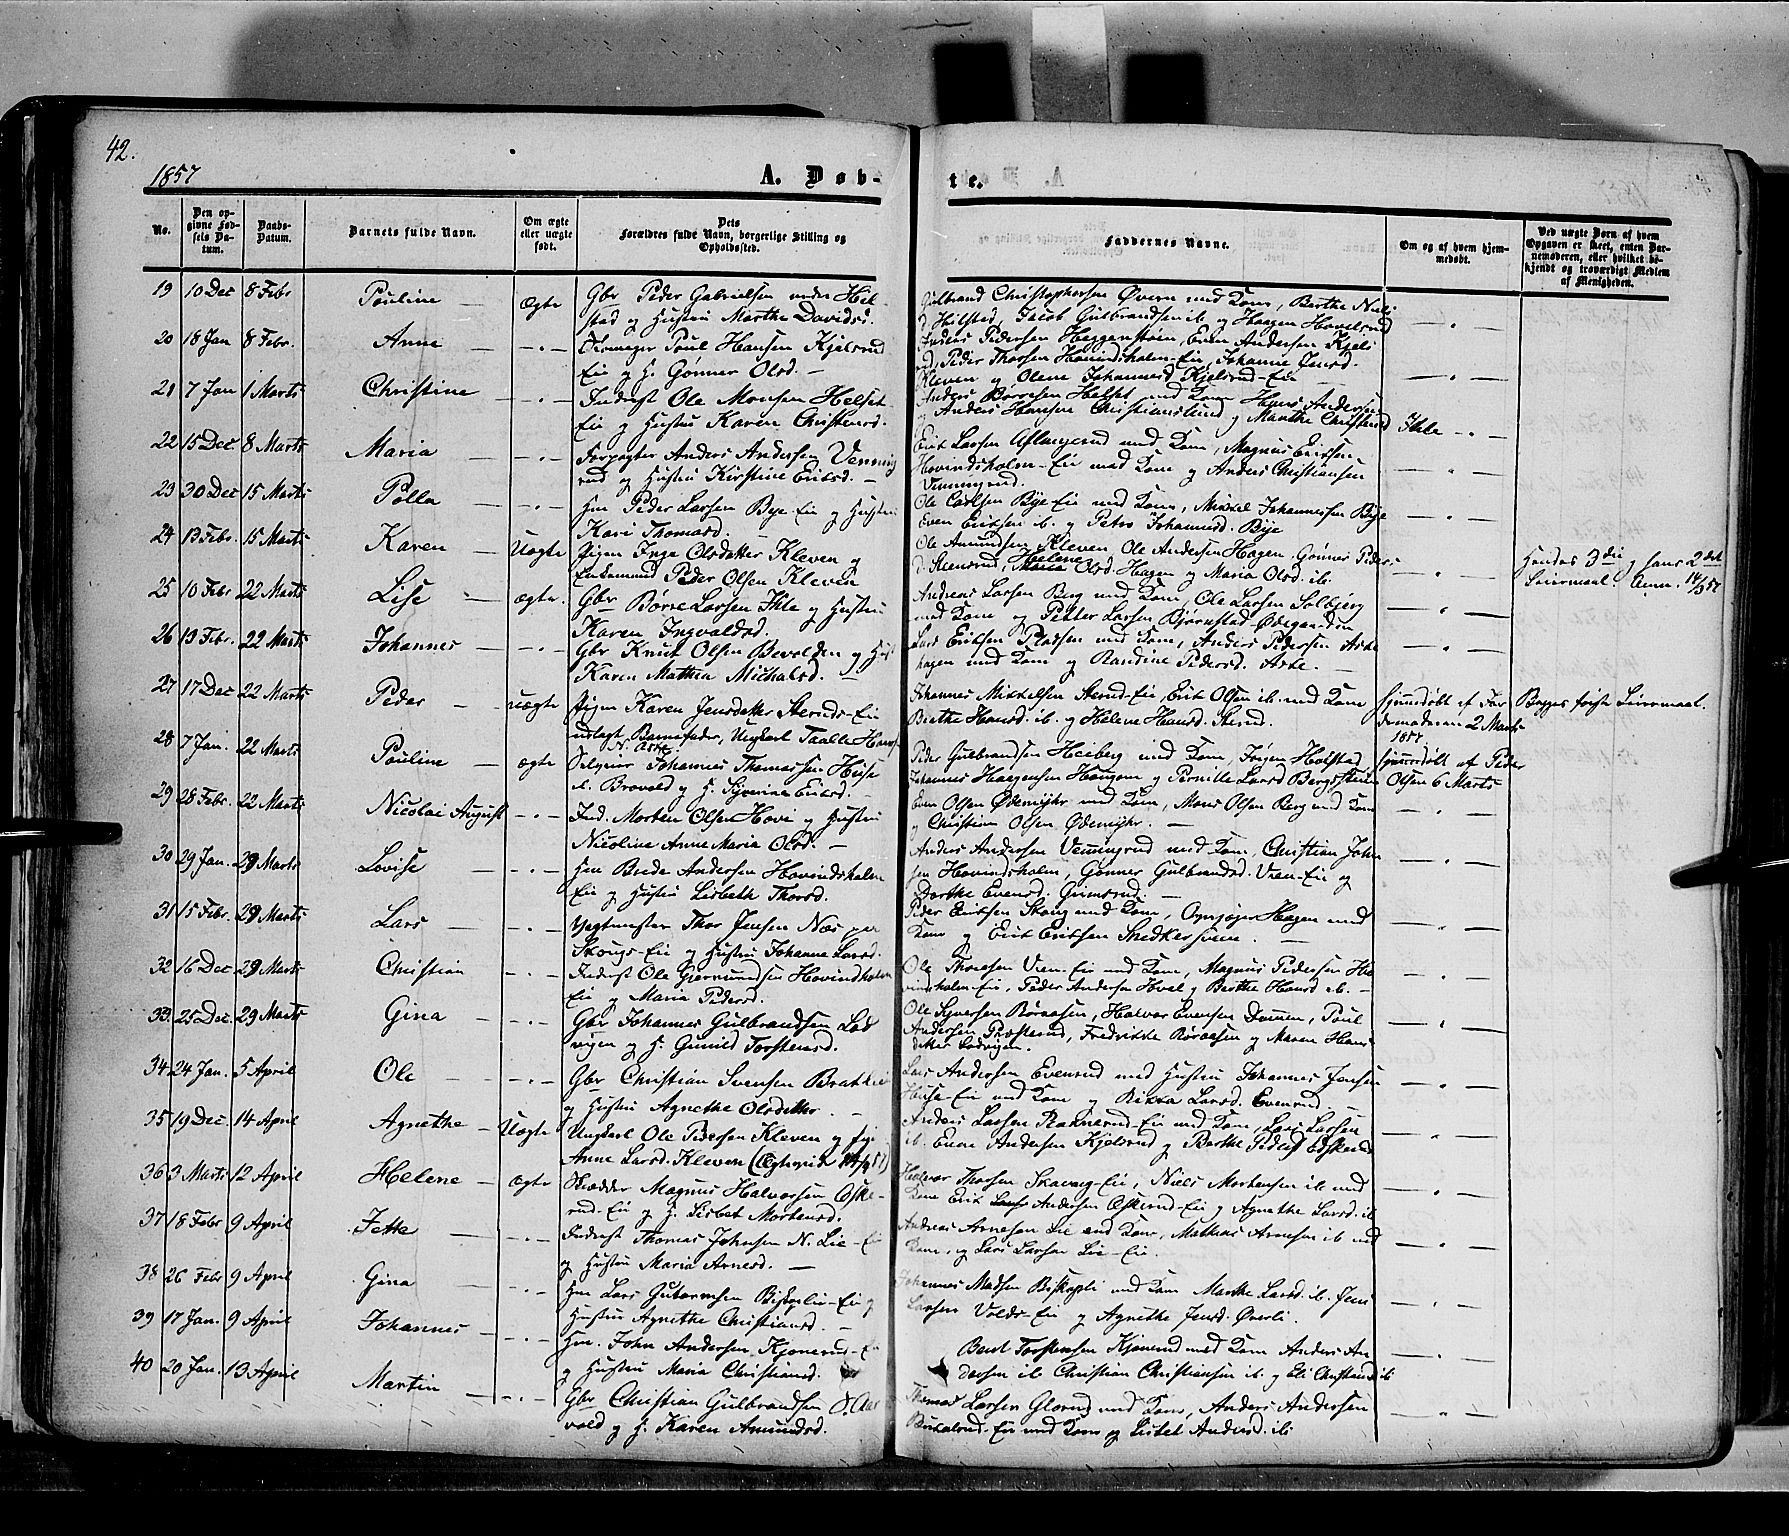 42.
1857
A. Døb-
te.
No.
Den op-
givne Fød-
sels Da-
tum.
Daabs-
Datum.
Barnets fulde Navn.
Om ægte
eller uægte
født.
Dets
Forældres fulde Navn, borgerlige Stilling og
Opholdssted.
Faddernes Navne.
Om og af hvem hjem-
medøbt.
Ved uægte Børn af hvem
Opgaven er skeet, enten Bar-
nemoderen, eller hvilket be-
kjendt og troværdigt Medlem
af Menigheden.
19 10 Dec 8 Febr Pauline — Ægte Gbr Peder Gabrielsen nedre Hil-
stad og Hustru Marthe Davidsd.
Gulbrand Christophersen Øvern med Kone, Berthe Niels
d. Hilstad, Jacob Gulbrandsen ib og Haagen Hovelsrud
20 18 Jan 8 Febr. Anne — -"- Poul Hansen Kjelsrud
Eie og H. Gønner Olsd. —
Anders Pedersen Heggenstøin, Even Andersen Kjels
rud, Peder Thorsen Hovindsholm-Eie, Johanne Jensd.
Kleven og Olene Johannesd Kjelsrud-Eie —
21 7 Jan 1 Marts Christine — -"- Inderst Ole Monsen Helset-
Eie og Hustru Karen Christensd.
Anders Børresen Helset med Kone Hans Andersen
Anders Hansen Christianslund og Marthe Christensd Ihle
22 15 Dec 8 Marts Maria — -"- Forpagter Anders Andersen Venning
rud og Hustru Kirstine Eriksd. —
Erik Larsen med Kone, Magnus Eriksen
Hovindsholm-Eie med Kone og Anders Christiansen
Venningrud.
23 30 Dec 15 Marts Polla — -"- Hm Peder Larsen Bye-Eie og Hustru
Kari Thomasd.
Ole Carlsen Bye-Eie med Kone, Mikkel Johannessen Bye
Even Eriksen ib. og Petra Johannesd. Bye
24 13 Febr. 15 Marts Karen — Uægte Pigen Inge Olsdatter Kleven og
Enkemand Peder Olsen Kleven
Ole Amundsen Kleven, Ole Andersen Hagen, Gønner Peders
d. Steensrud, Helene Olsd. Hagen og Maria Olsd. ib.
Hendes 3die og hans 2det
Leiermaal Anm. 14/3 57
25 10 Febr 22 Marts Lise — ægte. Gbr Børre Larsen Ihle og Hustru
Karen Ingvaldsd.
Andreas Larsen Berg med Kone, Ole Larsen Solbjerg
med Kone og Petter Larsen Bjørnstad Ødegaarden
26 13 Febr. 22 Marts Johannes — -"- Gbr Knut Olsen Bevolden og Hust
Karen Mathea Michalsd. —
Lars Eriksen Pladsen med Kone, Anders Pedersen Aske
hagen med Kone og Randine Pedersd. Aske. —
27 17 Dec 22 Marts Peder — uægte Pigen Karen Jensdatter Sterud-Eie
udlagt Barnefader, Ungkarl Taalle Hans
Johannes Mikkelsen Sterud-Eie, Erik Olsen ib. med Kone
Berthe Hansd. ib. og Helene Hansd. Sterud.
Hjemmedøbt af Jor
demoderen 2 Marts
1857
Begges første Leiermaal.
28 7 Jan. 22 Marts Pauline — ægte Selveier Johannes Thomassen Huse
N. Aske
d. Brovold og H. Eriksd. —
Peder Gulbrandsen Heiberg med Kone, Jørgen Holstad,
Johannes Haagensen Haugom og Pernille Larsd Berg
Hjemmedøbt af Peder
Olsen 6 Marts
29 28 Febr. 22 Marts Nicolai August -"- Ind. Morten Olsen Hovi og Hustru
Nicoline Anne Maria Olsd. —
Even Olsen Ødemyhr med Kone, Mons Olsen Berg med Kone
og Christian Olsen Ødemyhr. —
30 29 Jan. 29 Marts Lovise -"- Hm Brede Andersen Hovindsholm
Eie og Hustru Lisbeth Thorsd.
Anders Andersen Venningrud med Kone, Christian John
sen Hovindsholm, Gønner Gulbrandsd. Vien-Eie og
Dorthe Evensd. Grimsrud. —
31 15 Febr. 29 Marts Lars — -"- Vegtmester Thor Jensen Næs paa
Skougs-Eie og Hustru Johanne Larsd.
Peder Eriksen Skoug med Kone, Hagen med
Kone og Erik Eriksen Snedkersveen. —
32 16 Dec 29 Marts Christian -"- Inderst Ole Gjermundsen Hovindsholm
Eie og Maria Pedersd.
Ole Thoresen Vien-Eie med Kone, Magnus Pedersen Ho
vindsholm-Eie, Peder Andersen Hvel og Berthe Hansd ib. —
33. 25 Dec. 29 Marts Gina — -"- Gbr Johannes Gulbrandsen Lod
vigen og H. Gunild Torstensd.
Ole Syversen Røraasen, Halvor Evensen Dammen, Poul
Andersen Presterud, Fredrikke Røraasen og Maren Hans
datter Lodvigen.
34 24 Jan. 5 April Ole — -"- Gbr Christian Svensen Brathlie
og Hustru Agnethe Olsdatter. —
Lars Andersen Evensrud med Hustru Johannes Jensen
Huse-Eie med Kone og Rikka Larsd. Evensrud —
35 19 Dec. 14 April Agnethe — Uægte Ungkarl Ole Pedersen Kleven og Pige
Anne Larsd. Kleven
Anders Larsen Raknerud-Eie med Kone, Lars Larsen
ib. Even Andersen Kjelsrud og Berthe Pedersd
36 3 Marts 12 April Helene — ægte Skrædder Magnus Halvorsen Øske-
rud-Eie og H. Lisbet Mortensd.
Halvor Thorsen Skavang-Eie, Niels Mortensen ib med
Kone Erik Andersen Øskerud-Eie og Agnethe Larsd. ib
37 18 Febr 9 April Jette — -"- Inderst Thomas Johnsen N. Lie-Eie
og Hustru Maria Arnesd. —
Andreas Arnesen Lie med Kone, Mathias Arnesen ib med
Kone, og Lars Larsen Lie-Eie.
38 26 Febr 9 April Gina — -"- Hm Lars Guttormsen Biskoplie-Eie og
Hustru Agnethe Christiansd. —
Johannes Madsen Biskopli med Kone Marthe Larsd. ib. Jens
Larsen Volds-Eie og Agnethe Jensd. Øverli.
39 17 Jan. 9 April Johannes — -"- Hm. John Andersen, Kjonerud-Eie
og Hustru Maria Christiansd.
Bent Torstensen Kjonerud med Kone Anders An
dersen ib Christian Christiansen ib. og Eli Christensd ib
40 20 Jan. 13 April Martin — -"- Gbr Christian Gulbrandsen
vold og H. Karen Amundsd.
Thomas Larsen Glorud med Kone, Anders Andersen
med Kone og Lisbet Andersd. ib